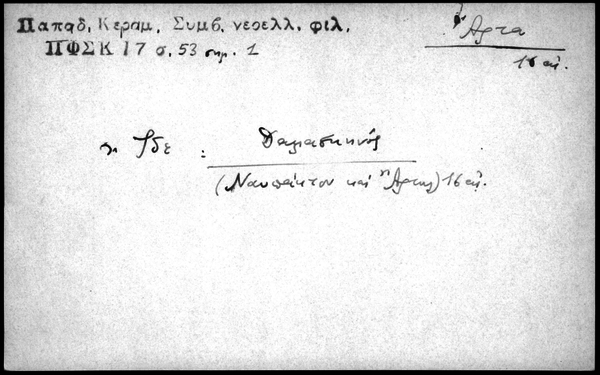 Παπαδ. Κεραμ. Συμβ. νεοελλ. φιλ.
ΠΦΣΚ 17 σ. 53 σημ. 1
Ἄρτα
16 αἰ.
Ἴδε : Δαμασκηνός
(Ναυπάκτου καὶ Ἄρτης) 16 αἰ.